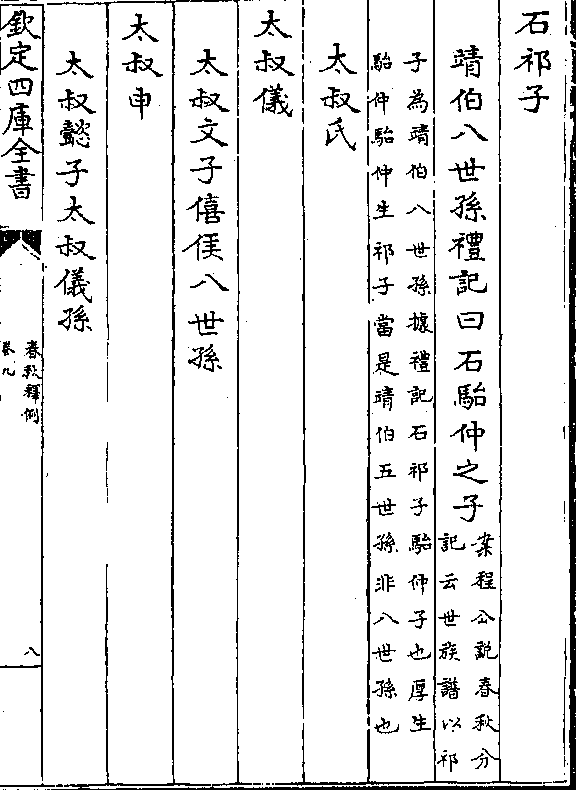 石祁子
靖伯八世孫禮記曰石駘仲之子
案程公說春秋分
記云世族譜以祁
子為靖伯八世孫據禮記石祁子駘仲子也厚生
駘仲駘仲生祁子當是靖伯五世孫非八世孫也
太叔氏
太叔儀
太叔文子僖侯八世孫
太叔申
太叔懿子太叔儀孫
欽定四庫全書
春秋釋例
卷九
八